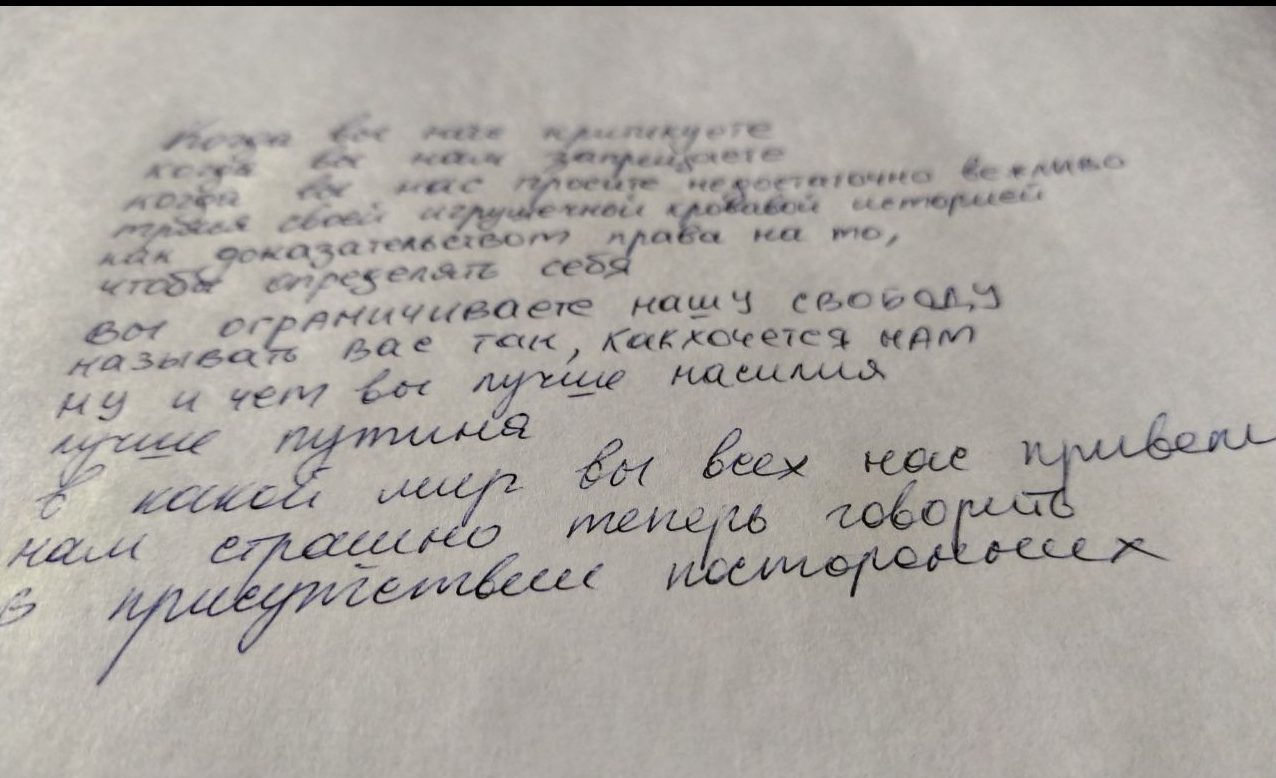 Когда вы нас критикуете
когда вы нам запрещаете
когда вы нас просите недостаточно вежливо
тряся своей игрушечной кровавой историей
как доказательством права на то,
чтобы определять себя
вы ограничиваете нашу свободу
называть вас так, как хочется нам
ну и чем вы лучше насилия
лучше путина
в какой мир вы всех нас
нам страшно теперь говорить
в присутствии посторонних